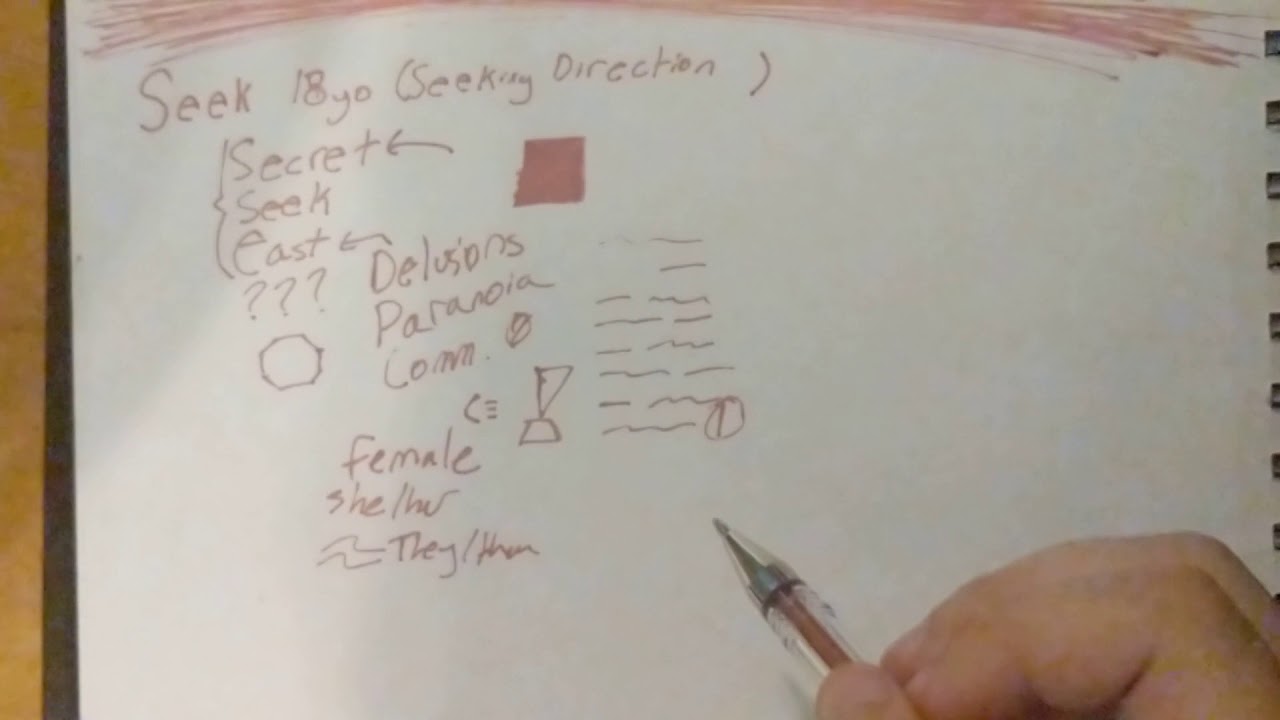 Seek 18yo (Seeking Direction )
Secret ←
Seek
East ←
???
Delusions
Paranoia
Comm.
Female
she/her
They/them